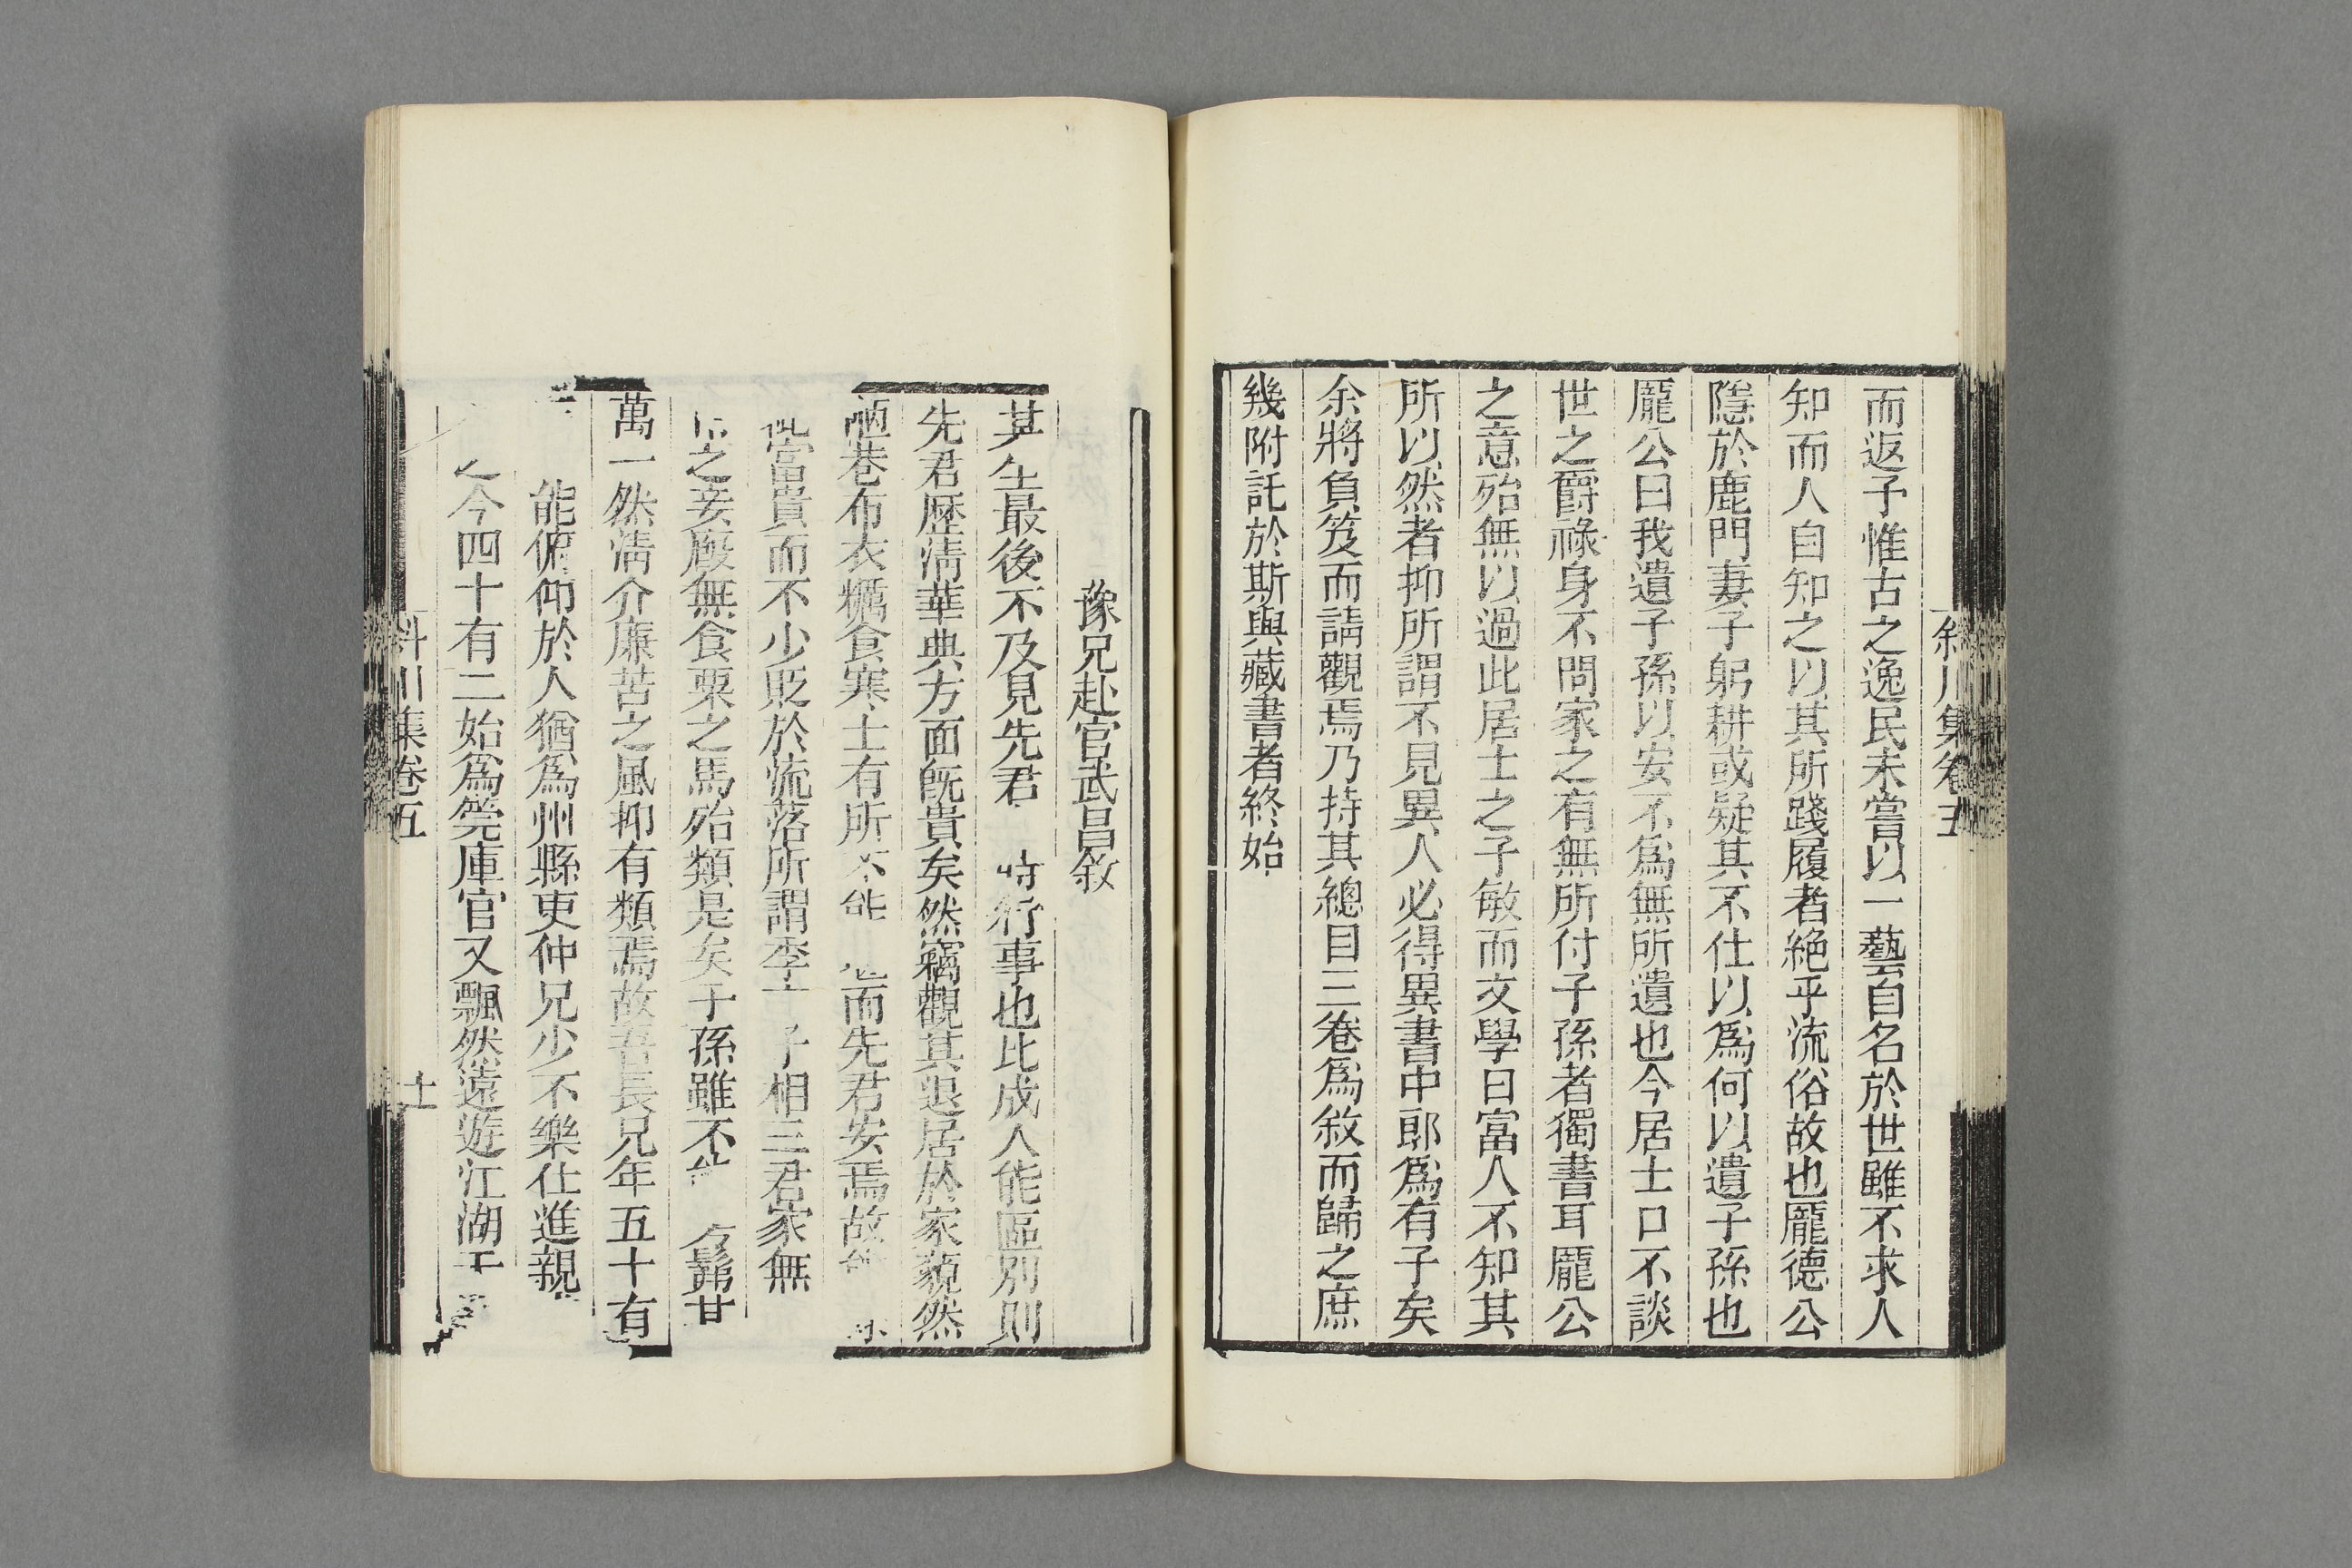 斜川集卷五
而返予惟古之逸民未嘗以一藝自名於世雖不求人
知而人自知之以其所踐履者絶乎流俗故也龐德公
隱於鹿門妻子躬耕或疑其不仕以爲何以遺子孫也
龐公曰我遺子孫以安不爲無所遺也今居士口不談
世之爵祿身不問家之有無所付子孫者獨書耳龐公
之意殆無以過此居士之子敏而文學曰富人不知其
所以然者抑所謂不見異人必得異書中郎爲有子矣
余將負笈而請觀焉乃持其總目三卷爲敘而歸之庶
幾附託於斯與藏書者終始
豫兄赴官武昌敘
其生最後不及見先君時行事也比成人能區別則
先君歷淸華典方面旣貴矣然竊觀其退居於家藐然
陋巷布衣糲食寒士有所不能而先君安焉故
富貴而不少貶於流落所謂李子相三君家無
之妾廐無食粟之馬殆類是矣子孫雖不髴甘
萬一然淸介廉苦之風抑有類焉故吾長兄年五十有
能俯仰於人猶爲州縣吏仲兄少不樂仕進親
今四十有二始爲筦庫官又飄然遠遊江湖
斜川集卷五
十